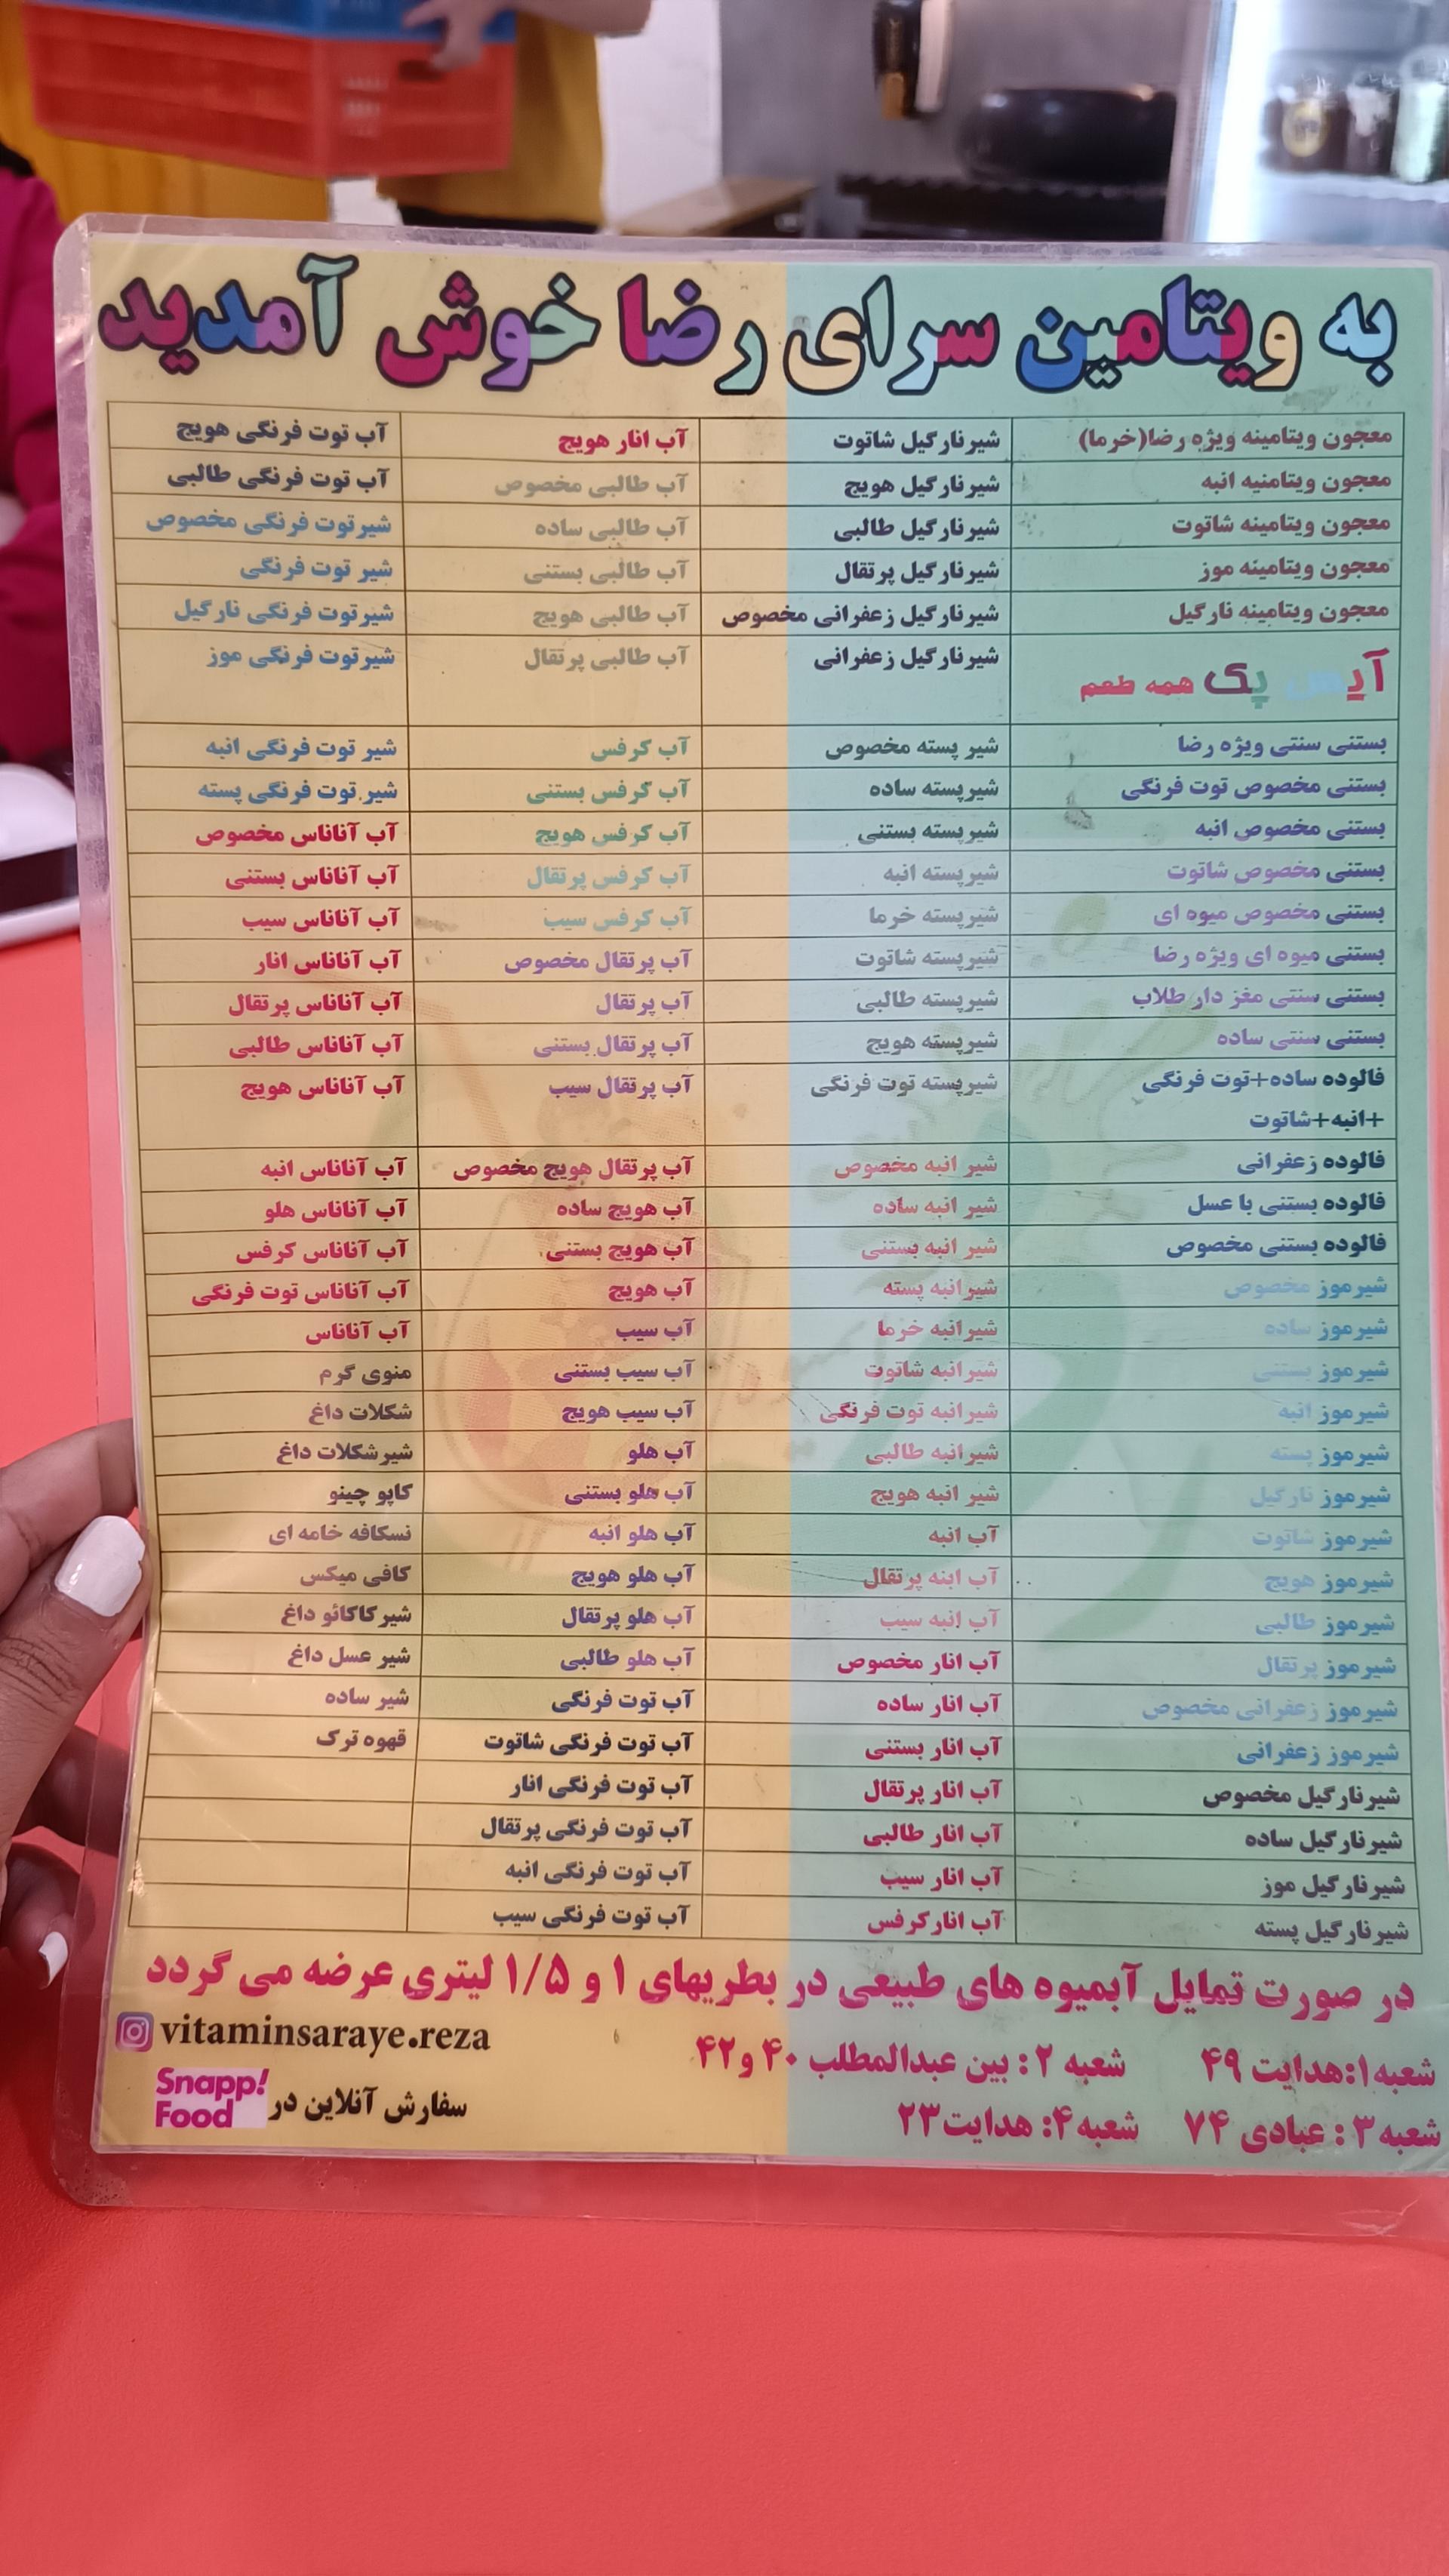 به ویتامین سرای رضا خوش آمدید
معجون ویتامینه ویژه رضا(خرما) شیرنارگیل شاتوت آب انار هویج آب توت فرنگی هویج
معجون ویتامنیه انبه شیرنارگیل هویج آب طالبی مخصوص آب توت فرنگی طالبی
معجون ویتامینه شاتوت شیرنارگیل طالبی آب طالبی ساده شیرتوت فرنگی مخصوص
معجون ویتامینه موز شیرنارگیل پرتقال آب طالبی بستنی شیر توت فرنگی
معجون ویتامینه نارگیل شیرنارگیل زعفرانی مخصوص آب طالبی هویج شیرتوت فرنگی نارگیل
آیس پک همه طعم شیرنارگیل زعفرانی آب طالبی پرتقال شیرتوت فرنگی موز
بستنی سنتی ویژه رضا شیر پسته مخصوص آب کرفس شیر توت فرنگی انبه
بستنی مخصوص توت فرنگی شیرپسته ساده آب کرفس بستنی شیر توت فرنگی پسته
بستنی مخصوص انبه شیرپسته بستنی آب کرفس هویج آب آناناس مخصوص
بستنی مخصوص شاتوت شیرپسته انبه آب کرفس پرتقال آب آناناس بستنی
بستنی مخصوص میوه ای شیرپسته خرما آب کرفس سیب آب آناناس سیب
بستنی میوه ای ویژه رضا شیرپسته شاتوت آب پرتقال مخصوص آب آناناس انار
بستنی سنتی مغز دار طلاب شیرپسته طالبی آب پرتقال آب آناناس پرتقال
بستنی سنتی ساده شیرپسته هویج آب پرتقال بستنی آب آناناس طالبی
فالوده ساده+توت فرنگی شیرپسته توت فرنگی آب پرتقال سیب آب آناناس هویج
+انبه+شاتوت
فالوده زعفرانی شیر انبه مخصوص آب پرتقال هویج مخصوص آب آناناس انبه
فالوده بستنی با عسل شیر انبه ساده آب هویج ساده آب آناناس هلو
فالوده بستنی مخصوص شیر انبه بستنی آب هویج بستنی آب آناناس کرفس
شیرموز مخصوص شیرانبه پسته آب هویج آب آناناس توت فرنگی
شیرموز ساده شیرانبه خرما آب سیب آب آناناس
شیرموز بستنی شیرانبه شاتوت آب سیب بستنی منوی گرم
شیرموز انبه شیرانبه توت فرنگی آب سیب هویج شکلات داغ
شیرموز پسته شیرانبه طالبی آب هلو شیرشکلات داغ
شیرموز نارگیل شیر انبه هویج آب هلو بستنی کاپو چینو
شیرموز شاتوت آب انبه آب هلو انبه نسکافه خامه ای
شیرموز هویج آب ابنه پرتقال آب هلو هویج کافی میکس
شیرموز طالبی آب انبه سیب آب هلو پرتقال شیرکاکائو داغ
شیرموز پرتقال آب انار مخصوص آب هلو طالبی شیر عسل داغ
شیرموز زعفرانی مخصوص آب انار ساده آب توت فرنگی شیر ساده
شیرموز زعفرانی آب انار بستنی آب توت فرنگی شاتوت قهوه ترک
شیرنارگیل مخصوص آب انار پرتقال آب توت فرنگی انار
شیرنارگیل ساده آب انار طالبی آب توت فرنگی پرتقال
شیرنارگیل موز آب انار سیب آب توت فرنگی انبه
شیرنارگیل پسته آب انارکرفس آب توت فرنگی سیب
در صورت تمایل آبمیوه های طبیعی در بطریهای ۱ و ۱/۵ لیتری عرضه می گردد
شعبه۱:هدایت ۴۹ شعبه ۲: بین عبدالمطلب ۴۰ و۴۲ vitaminsaraye.reza
شعبه۳: عبادی ۷۴ شعبه۴: هدایت۲۳ سفارش آنلاین در Snapp! Food